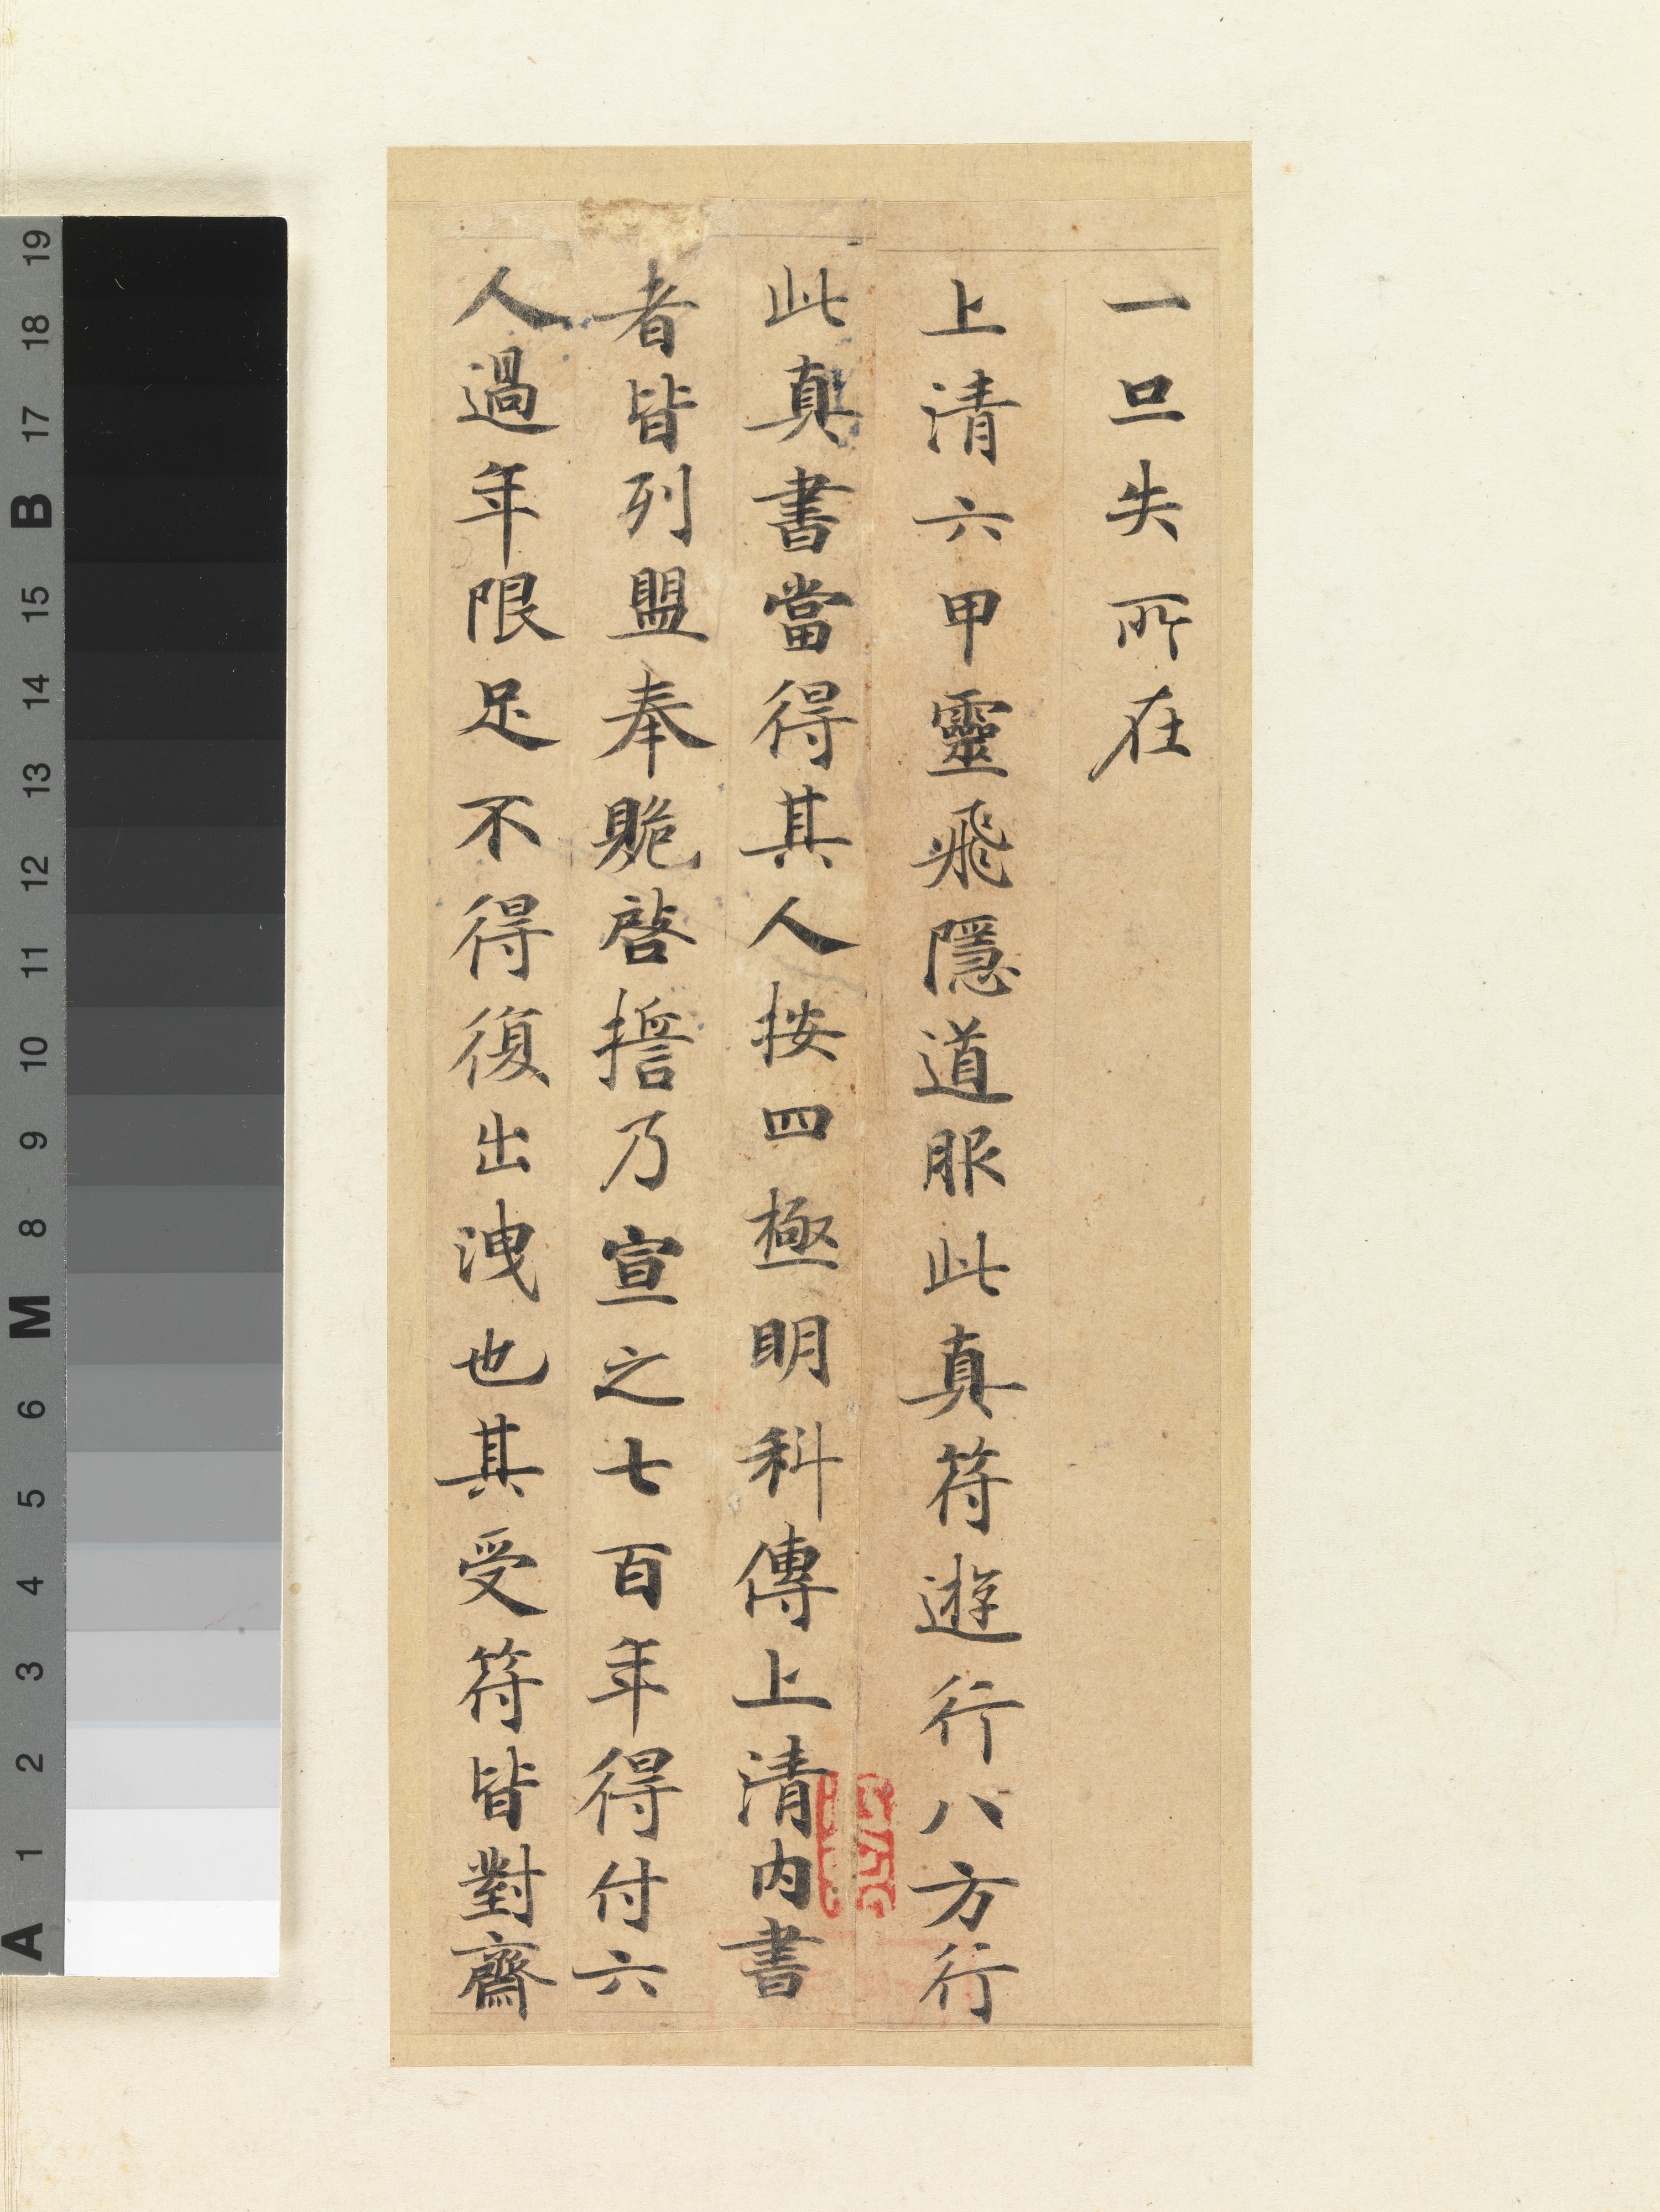 一旦失所在
上清六甲靈飛隱道服此真符遊行八方行
此真書當得其人按四極明科傳上清內書
者皆列盟奉貺啓擔乃宣之七百年得付六
人過年限足不得復出洩也其受符皆對齋
19
18
17
B
15
14
13
12
11
10
9
8
M
6
5
4
3
2
1
A